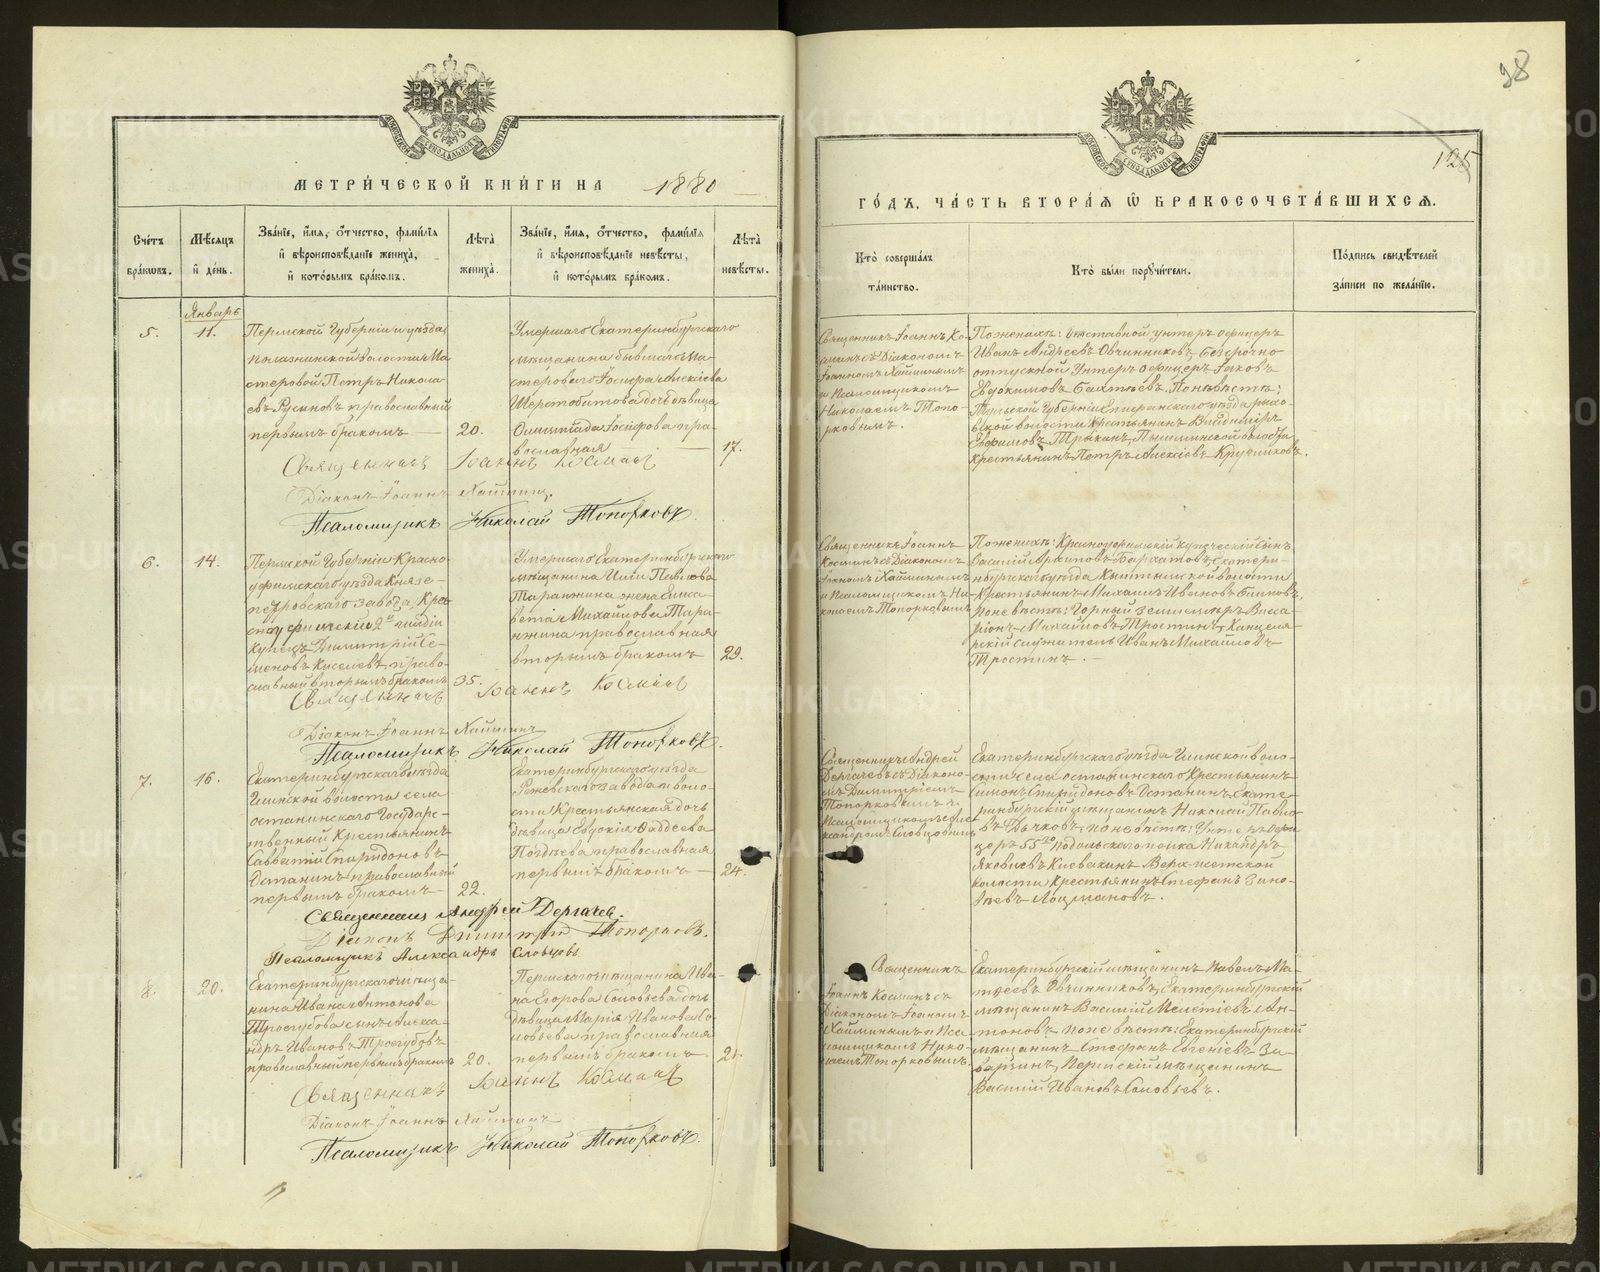 98
125
МЕТРИ́ЧЕСКОЙ КНИ́ГИ НА 1880
ГО́ДЪ, ЧА́СТЬ ВТОРА́Я Ѿ БРАКОСОЧЕТА́ВШИХСЯ.
Сче́тъ бра́кѡвъ.
Мѣ́сяцъ и҆ де́нь.
Зва́нїе, и҆́мя, ѻ҆́тчество, фами́лїя и҆ вѣроисповѣ́данїе жениха̀, и҆ кото́рымъ бра́комъ.
Лѣ́та жениха̀.
Зва́нїе, и҆́мя, ѻ҆́тчество, фами́лїя и҆ вѣроисповѣ́данїе невѣ́сты, и҆ кото́рымъ бра́комъ.
Лѣ́та невѣ́сты.
Кто̀ соверша́лъ та́инство.
Кто̀ бы́ли порꙋчи́тели.
По́дпись свидѣ́телей за́писи по жела́нїю.
Январь
5.
11.
Пермской Губерніи и уѣзда
волости Ма
стеровой Петръ Никола
евъ Русиновъ православный
первымъ бракомъ
20.
Умершаго Екатеринбургскаго
мѣщанина бывшаго Ма-
стероваго Іосифа Алексѣева
Шерстобитова дочь дѣвица
Олимпіада Іосифова пра-
вославная
17.
Священникъ Іоаннъ Ко-
сминъ съ Діакономъ
Іоанномъ Хайминымъ
и Псаломщикомъ
Николаемъ Топо-
рковымъ.
По женихѣ: отставной унтеръ офицеръ
Иванъ Андреевъ Овчинниковъ, безсрочно-
отпускной унтеръ офицеръ Яковъ
Евдокимовъ Бахтѣевъ. По невѣстѣ:
Тульской Губерніи Епифанскаго уѣзда
волости Крестьянинъ Владиміръ
Ефимовъ Пышминской волости
Крестьянинъ Петръ Алексѣевъ Кругликовъ.
Священникъ Іоаннъ Косминъ
Діаконъ Іоаннъ Хайминъ.
Псаломщикъ Николай Топорковъ.
6.
14.
Пермской Губерніи Красно-
уфимскаго уѣзда Князе-
петровскаго завода, Крас
ноуфимскій 2й гильдіи
купецъ Димитрій Се-
меновъ Киселевъ, право-
славный вторымъ бракомъ
35.
Умершаго Екатеринбургскаго
мѣщанина Ильи Павлова
Таранжина жена Елиса-
вета Михайлова Тара-
нжина православная
вторымъ бракомъ
29.
Священникъ Іоаннъ
Косминъ съ Діакономъ
Іоанномъ Хайминымъ
и Псаломщикомъ Ни-
колаемъ Топорковымъ
По женихѣ: Красноуфимскій купеческій сынъ
Василій Архиповъ Бархатовъ, Екатери-
нбургскаго уѣзда Кыштымской волости
Крестьянинъ Михаилъ Ивановъ Блиновъ;
по невѣстѣ: Горный землемѣръ Висса-
ріонъ Михайловъ Тростинъ, Канцеля-
рскій служитель Иванъ Михайловъ
Тростинъ.
Священникъ Іоаннъ Косминъ
Діаконъ Іоаннъ Хайминъ
Псаломщикъ Николай Топорковъ.
7.
16.
Екатеринбургскаго уѣзда
Глинской волости села
Останинскаго Государс-
твенный Крестьянинъ
Савватій Спиридоновъ
Останинъ православный
первымъ бракомъ
22.
Екатеринбургскаго уѣзда
Режевскаго завода и воло-
сти Крестьянская дочь
дѣвица Евдокія Фаддеева
Поздѣева православная
первымъ бракомъ
24.
Священникъ Андрей
Дергачевъ съ Діаконо-
мъ Димитріемъ
Топорковымъ и
Псаломщикомъ Алек
сандромъ Словцовымъ
Екатеринбургскаго уѣзда Глинской воло-
сти села Останинскаго Крестьянинъ
Симонъ Спиридоновъ Останинъ, Екате-
ринбургскій мѣщанинъ Николай Павло-
въ Дьячковъ, по невѣстѣ: Унтеръ офи-
церъ 55го Подольскаго полка Никандръ
Яковлевъ Киевакинъ Верх-исетской
волости Крестьянинъ Стефанъ Зино-
вьевъ Лоцмановъ.
Священникъ Андрей Дергачевъ.
Діаконъ Димитрій Топорковъ.
Псаломщикъ Александръ Словцовъ
8.
20.
Екатеринбургскаго мѣща-
нина Ивана Антонова
Трегубова сынъ Алекса-
ндръ Ивановъ Трегубовъ
православный первымъ бракомъ
20.
Пермскаго мѣщанина Ива-
на Егорова Соловьева дочь
дѣвица Марія Иванова Со-
ловьева православная
первымъ бракомъ
21.
Священникъ
Іоаннъ Косминъ съ
Діакономъ Іоанномъ
Хайминымъ и Пса-
ломщикомъ Нико-
лаемъ Топорковымъ.
Екатеринбургскій мѣщанинъ Павелъ Ма-
тѳеевъ Овчинниковъ, Екатеринбургскій
мѣщанинъ Василій Мелетіевъ Ан-
тоновъ по невѣстѣ: Екатеринбургскій
мѣщанинъ Стефанъ Евгеніевъ За-
варзинъ, Пермскій мѣщанинъ
Василій Ивановъ Соловьевъ.
Священникъ Іоаннъ Косминъ
Діаконъ Іоаннъ Хайминъ
Псаломщикъ Николай Топорковъ.
METRIKI.GASO-URAL.RU